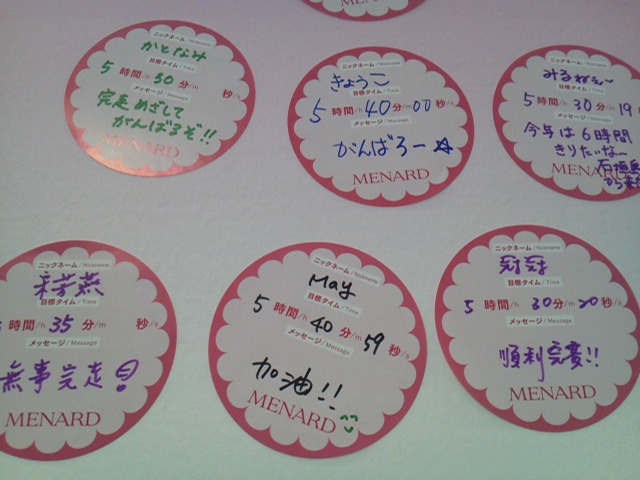 MENARD
ニックネーム/Nickname
かとなみ
目標タイム/Time
5 時間/h 30 分/m 秒/s
メッセージ/Message
完走めざして
がんばるぞ!!
MENARD
ニックネーム/Nickname
きょうこ
目標タイム/Time
5 時間/h 40 分/m 00 秒/s
メッセージ/Message
がんばろー☆
MENARD
ニックネーム/Nickname
目標タイム/Time
5 時間/h 30 分/m 19
メッセージ/Message
今年は6時間
きりたいな〜
石垣島
から来た
MENARD
ニックネーム/Nickname
目標タイム/Time
時間/h 35 分/m 秒/s
メッセージ/Message
無事完走!
MENARD
ニックネーム/Nickname
May
目標タイム/Time
5 時間/h 40 分/m 59 秒/s
メッセージ/Message
加油!!
MENARD
ニックネーム/Nickname
冠冠
目標タイム/Time
5 時間/h 30 分/m 20 秒/s
メッセージ/Message
順利完賽!!
MENARD